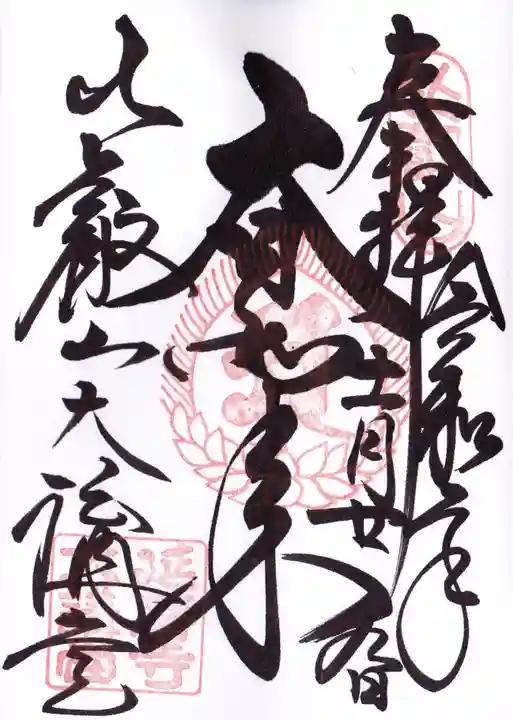 奉拝
令和
月廿
日
大日如来
比叡山大講堂
延暦寺
大講堂